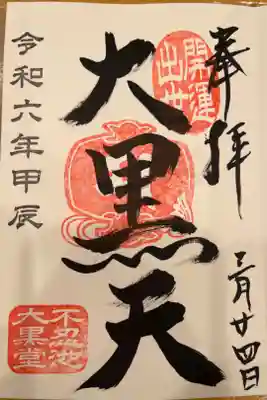 奉拝
三月廿四日
開運
出世
大黒天
令和六年甲辰
不忍池
大黒堂